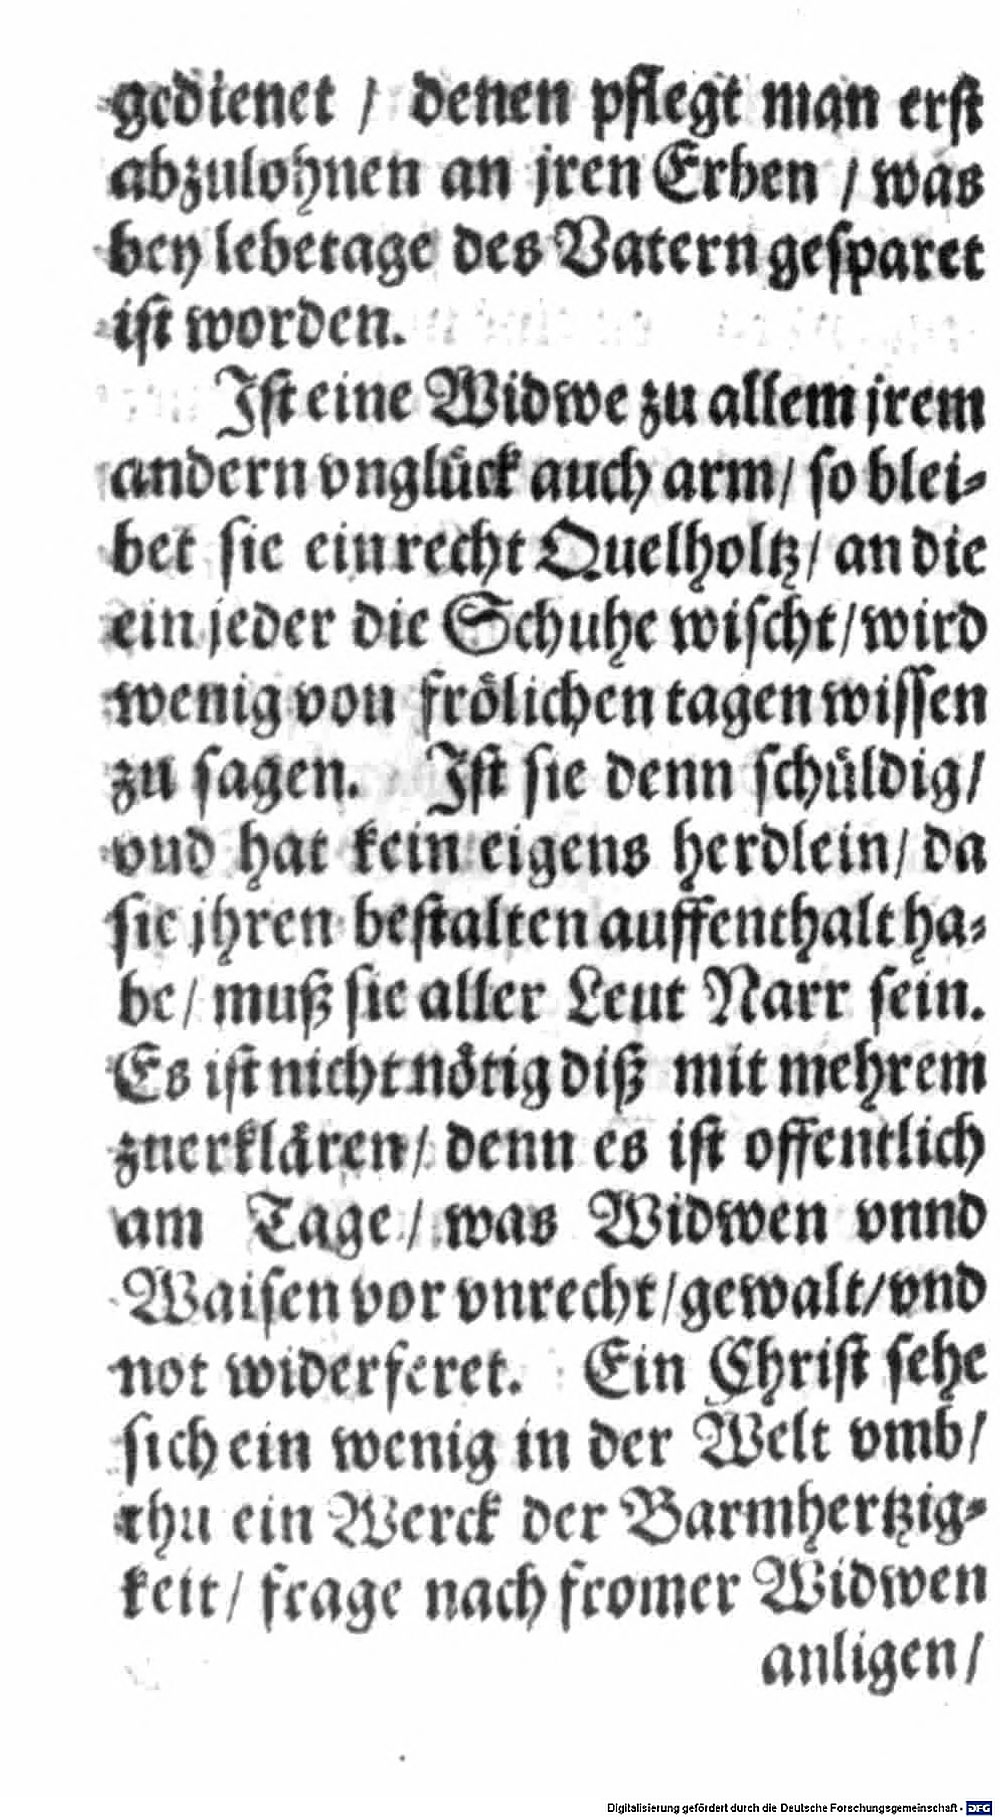 gedienet / denen pflegt man erst
abzulohnen an jren Erben / was
bey lebetage des Vatern gesparet
ist worden.
Ist eine Widwe zu allem jrem
andern vnglück auch arm / so blei-
bet sie ein recht Quelholtz / an die
ein jeder die Schuhe wischt / wird
wenig von frölichen tagen wissen
zu sagen. Ist sie denn schüldig /
vnd hat kein eigens herdlein / da
sie jhren bestalten auffenthalt ha-
be / muß sie aller Leut Narr sein.
Es ist nicht nötig diß mit mehrem
zuerklären / denn es ist offentlich
am Tage / was Widwen vnnd
Waisen vor vnrecht / gewalt / vnd
not widerferet. Ein Christ sehe
sich ein wenig in der Welt vmb /
thu ein Werck der Barmhertzig-
keit / frage nach fromer Widwen
anligen /
Digitalisierung gefördert durch die Deutsche Forschungsgemeinschaft - DFG